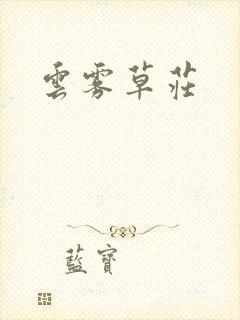 雲雾草莊
藍寶